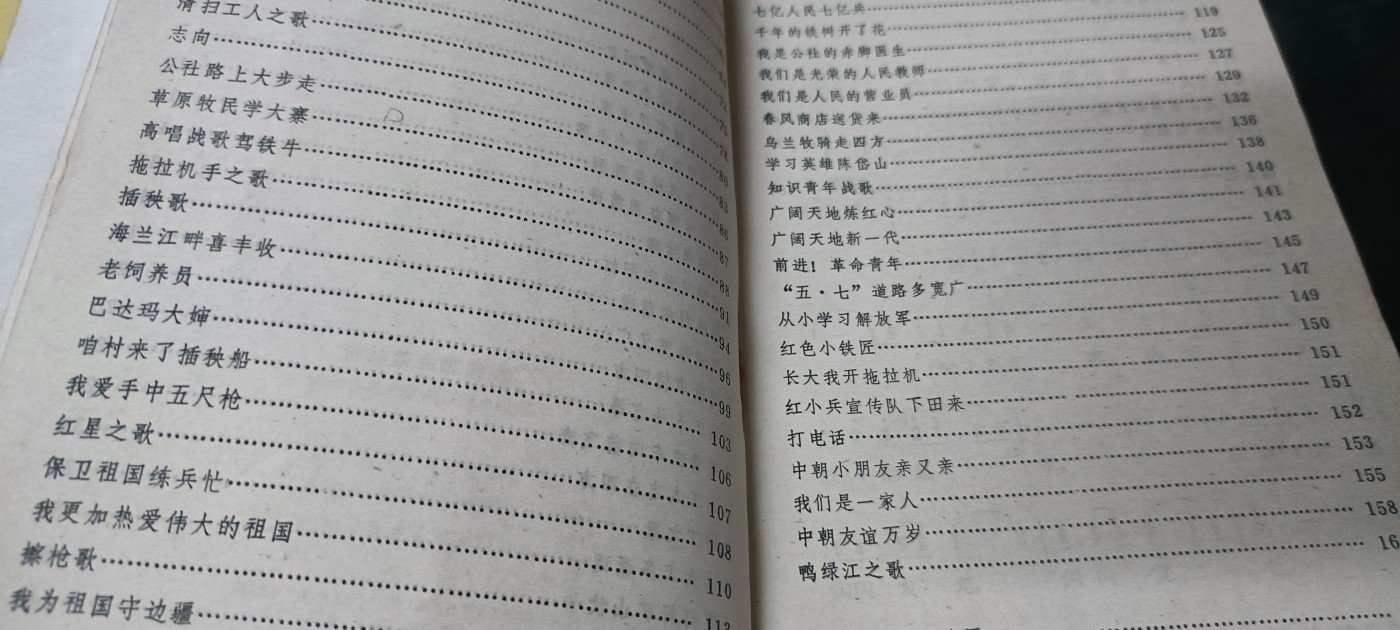 清扫工人之歌……78
志向……80
公社路上大步走……83
草原牧民学大寨……86
高唱战歌驾铁牛……87
拖拉机手之歌……88
插秧歌……91
海兰江畔喜丰收……94
老饲养员……96
巴达玛大婶……99
咱村来了插秧船……103
我爱手中五尺枪……106
红星之歌……107
保卫祖国练兵忙……108
我更加热爱伟大的祖国……110
擦枪歌……113
我为祖国守边疆……
七亿人民七亿兵……
千年的铁树开了花……119
我是公社的赤脚医生……125
我们是光荣的人民教师……127
我们是人民的营业员……129
春风商店送货来……132
乌兰牧骑走四方……136
学习英雄陈岱山……138
知识青年战歌……140
广阔天地炼红心……141
广阔天地新一代……143
前进！革命青年……145
“五·七”道路多宽广……147
从小学习解放军……149
红色小铁匠……150
长大我开拖拉机……151
红小兵宣传队下田来……151
打电话……152
中朝小朋友亲又亲……153
我们是一家人……155
中朝友谊万岁……158
鸭绿江之歌……16